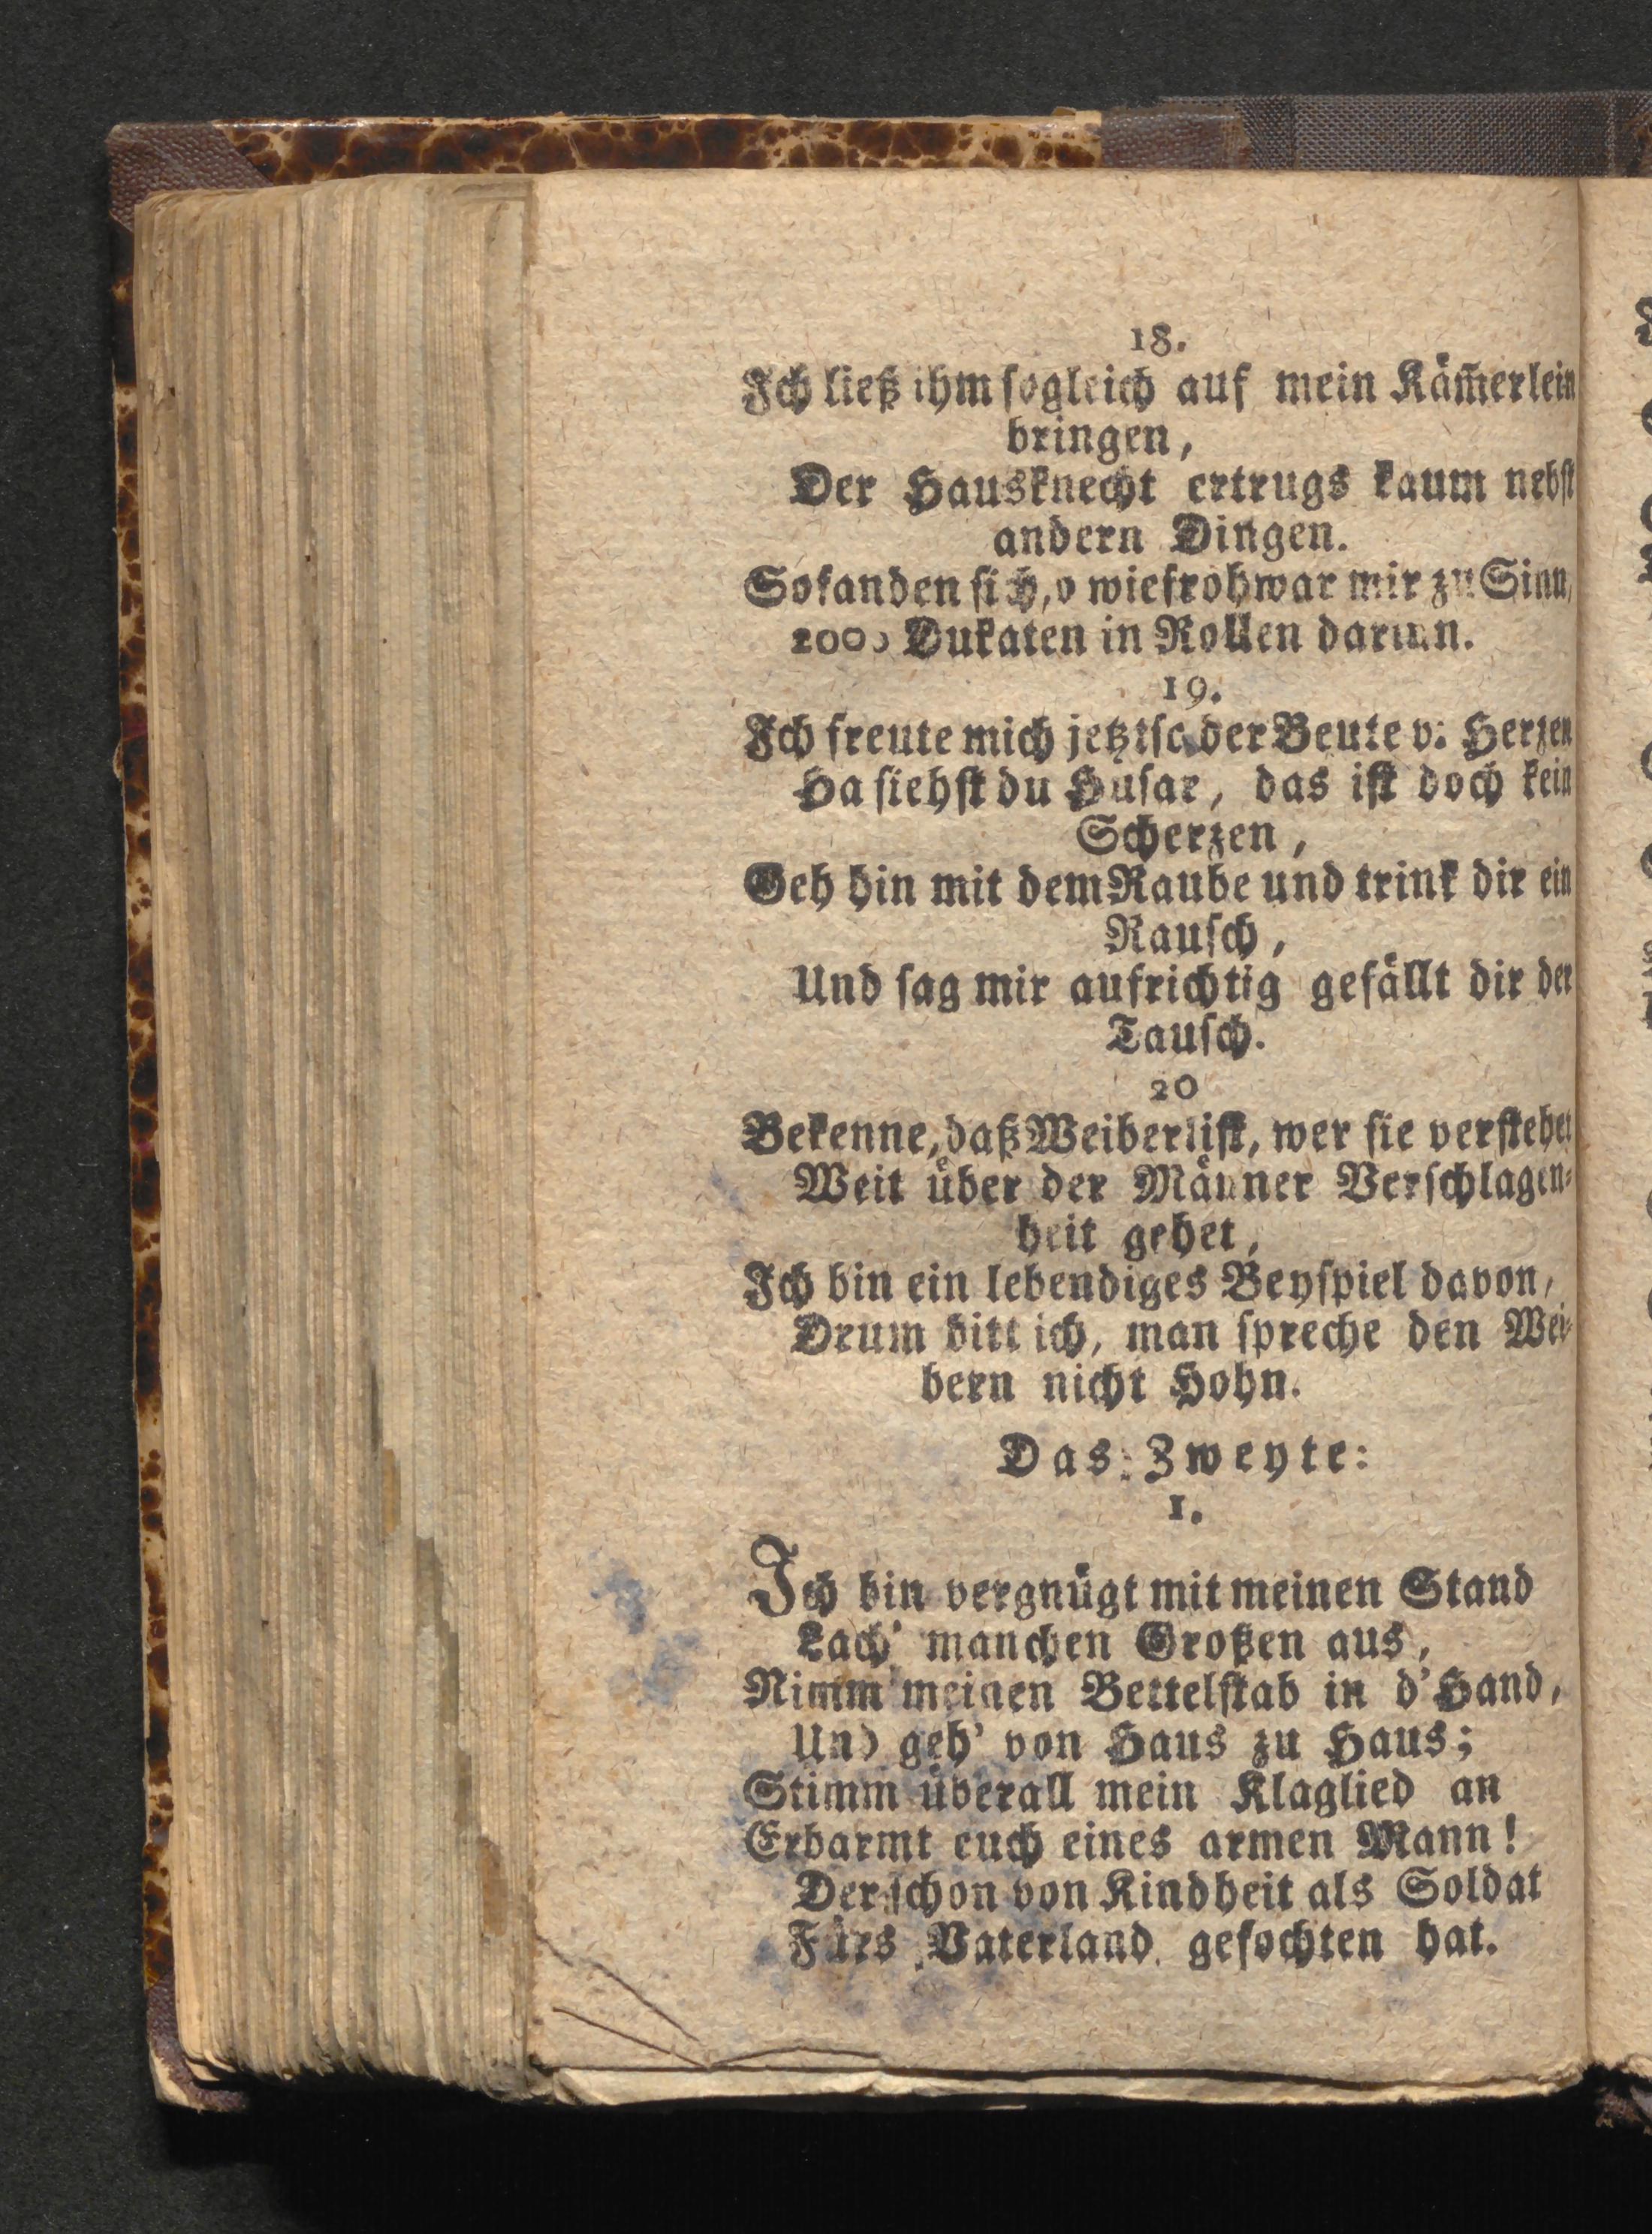 18.
Ich ließ ihm sogleich auf mein Käm̃erlein
bringen,
Der Hausknecht ertrugs kaum nebst
andern Dingen.
Sofanden sich, o wiefrohwar mir zu Sinn,
2000 Dukaten in Rollen darinn.
19.
Ich freute mich jetzt so der Beute v: Herzen
Ha siehst du Husar, das ist doch kein
Scherzen,
Geh hin mit dem Raube und trink dir ein
Rausch,
Und sag mir aufrichtig gefällt dir der
Tausch.
20
Bekenne, daß Weiberlist, wer sie verstehet
Weit über der Männer Verschlagen-
heit gehet,
Ich bin ein lebendiges Beyspiel davon,
Drum bitt ich, man spreche den Wei-
bern nicht Hohn.
Das Zweyte:
1.
Ich bin vergnügt mit meinen Stand
Lach' manchen Großen aus,
Nimm meinen Bettelstab in d'Hand,
Und geh' von Haus zu Haus;
Stimm überall mein Klaglied an
Erbarmt euch eines armen Mann!
Der schon von Kindheit als Soldat
Fürs Vaterland gefochten hat.